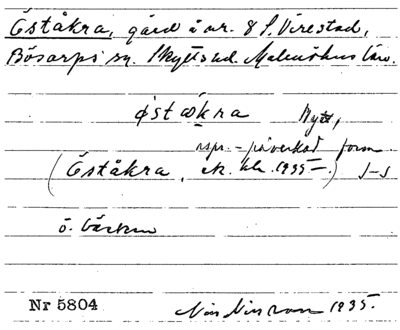 Öståkra, gård å nr. 8 S. Virestad,
Bösarps sn. Skytts hd. Malmöhus län.
øståkra Nytt,
rspr.-påverkad form
(Öståkra, ek. kle. 1935–.) J–S
ö. bäcken
Nr 5804 Nils Nilsson 1935.